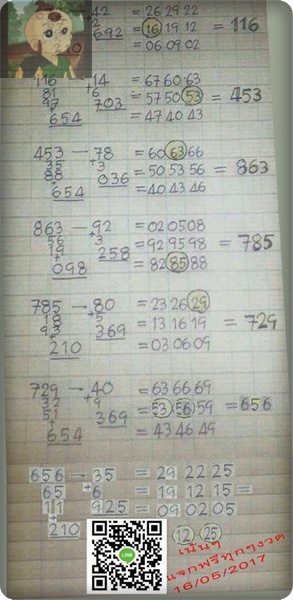 42 = 26 29 22
692 = 16 19 12 = 116
= 06 09 02
116 14 = 67 60 63
81 + 6 = 57 50 53 = 453
97 703 = 47 40 43
654
453 — 78 = 60 63 66
35 + 3 = 50 53 56 = 863
88 036 = 40 43 46
654
863 — 92 = 02 05 08
56 + 3 = 92 95 98 = 785
19 258 = 82 85 88
098
785 — 80 = 23 26 29
18 + 5 = 13 16 19 = 729
93 369 = 03 06 09
210
729 — 40 = 63 66 69
32 + 9 = 53 56 59 = 656
51 369 = 43 46 49
654
656 — 35 = 29 22 25
65 + 6 = 19 12 15 =
11 925 = 09 02 05
210
LINE
12 25
เน้นๆ
แจกฟรีทุกๆงวด
16/05/2017